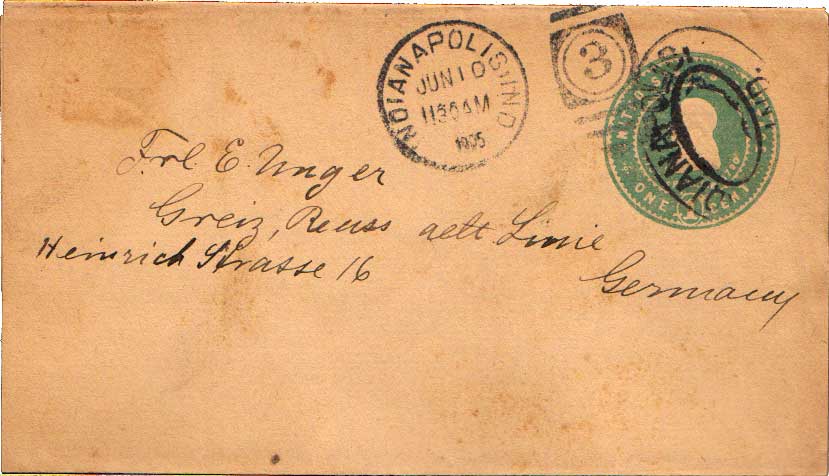 INDIANAPOLIS, IND
JUN 10
1130AM
1905
3
UNITED S
ONE
Frl. E. Unger
Greiz, Reuss aelt Linie
Heinrich Strasse 16
Germany